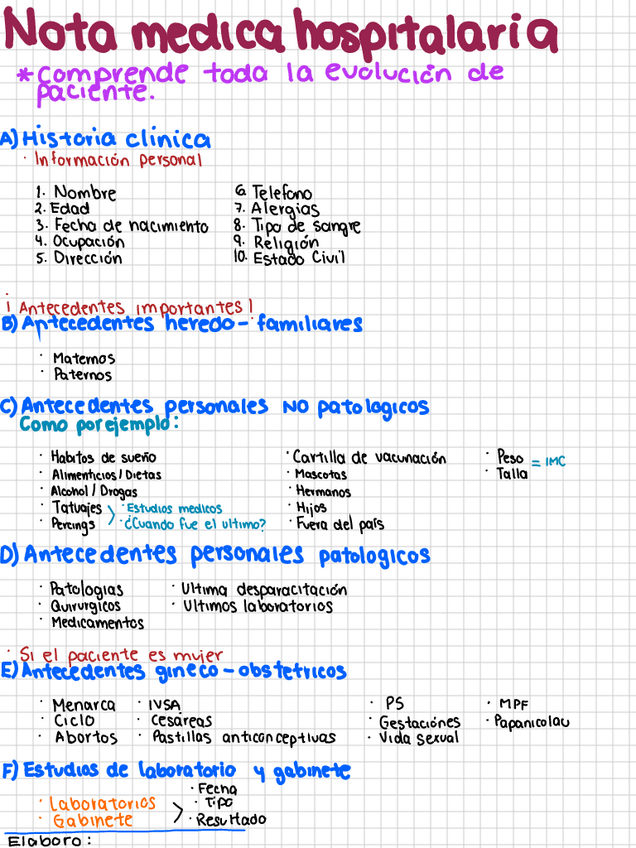 Nota medica hospitalaria
* Comprende toda la evolución de
paciente.
A) Historia clinica
· Información personal
1. Nombre
2. Edad
3. Fecha de nacimiento
4. Ocupación
5. Dirección
6. Telefono
7. Alergias
8. Tipo de sangre
9. Religión
10. Estado Civil
¡ Antecedentes importantes !
B) Antecedentes heredo-familiares
· Maternos
· Paternos
C) Antecedentes personales NO patologicos
Como por ejemplo:
· Habitos de sueño
· Alimenticios / Dietas
· Alcohol / Drogas
· Tatuajes
· Percings
· Estudios medicos
· ¿Cuando fue el ultimo?
· Cartilla de vacunación
· Mascotas
· Hermanos
· Hijos
· Fuera del país
· Peso
· Talla
= IMC
D) Antecedentes personales patologicos
· Patologias
· Quirurgicos
· Medicamentos
· Ultima desparacitación
· Ultimos laboratorios
· Si el paciente es mujer
E) Antecedentes gineco-obstetricos
· Menarca
· Ciclo
· Abortos
· IVSA
· Cesáreas
· Pastillas anticonceptivas
· PS
· Gestaciónes
· Vida sexual
· MPF
· Papanicolau
F) Estudios de laboratorio y gabinete
· Laboratorios
· Gabinete
· Fecha
· Tipo
· Resultado
Elaboro: